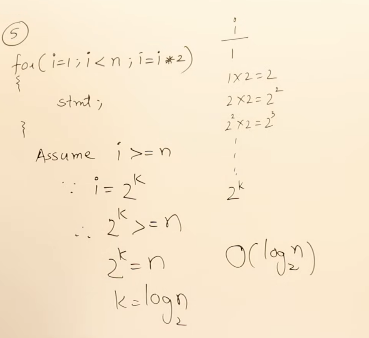 5
for(i=1; i<n; i=i*2)
{
stmt;
}
Assume i>=n
∵ i=2^k
∴ 2^k>=n
2^k=n
k=log₂n
i
1
1×2=2
2×2=2²
2²×2=2³
2^k
O(log₂n)